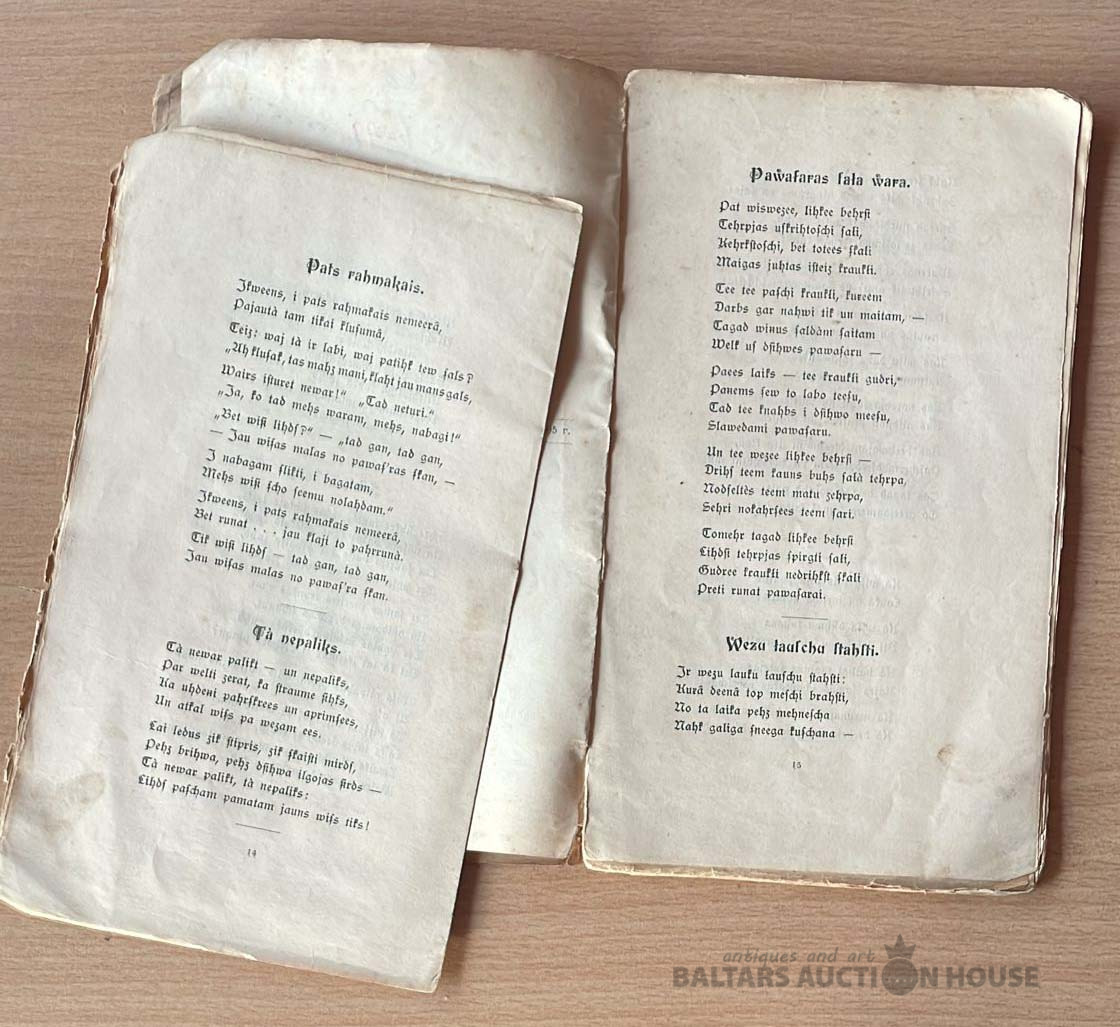 Pats rahmakais.
Ikweens, i pats rahmakais nemeerâ,
Pajautà tam tikai klusumâ,
Teiz: waj tà ir labi, waj patihk tew ſals?
„Ak kluſak, tas mahz mani, klaht jau mans gals,
Wairs iſturet newar!“ „Tad neturi.“
„Ja, ko tad mehs waram, mehs, nabagi!“
„Bet wiſi lihdſ?“ — „tad gan, tad gan,
— Jau wiſas malas no pawaſ'ras ſkan, —
I nabagam ſlikti, i bagatam,
Mehs wiſi ſcho ſeemu nolahdam.“
Ikweens, i pats rahmakais nemeerâ,
Bet runat . . . jau klaji to pahrrunà.
Tik wiſi lihdſ — tad gan, tad gan,
Jau wiſas malas no pawaſ'ra ſkan.
Tà nepaliks.
Tà newar palikt — un nepaliks,
Par welti zerat, ka ſtraume ſihks,
Ka uhdeni pahrſkrees un aprimſees,
Un atkal wiſs pa wezam ees.
Lai ledus zik ſtipris, zik ſkaiſti mirdſ,
Pehz brihwa, pehz dſihwa ilgojas ſirds —
Tà newar palikt, tà nepaliks:
Lihdſ paſcham pamatam jauns wiſs tiks!
14
5 r.
Pawaſaras ſala wara.
Pat wiswezee, lihkee behrſi
Tehrpjas uſkrihtoſchi ſali,
Kehrkſtoſchi, bet totees ſkali
Maigas juhtas iſteiz kraukli.
Tee tee paſchi kraukli, kureem
Darbs gar nahwi tik un maitam, —
Tagad winus ſaldàm ſaitam
Welk uſ dſihwes pawaſaru —
Paees laiks — tee kraukli gudri,
Panems ſew to labo teeſu,
Tad tee knahbs i dſihwo meeſu,
Slawedami pawaſaru.
Un tee wezee lihkee behrſi —
Drihſ teem kauns buhs ſalà tehrpa,
Nodſeltès teem matu zehrpa,
Sehri nokahrſees teem ſari.
Tomehr tagad lihkee behrſi
Lihdſi tehrpjas ſpirgti ſali,
Gudree kraukli nedrihkſt ſkali
Preti runat pawaſarai.
Wezu lauſchu ſtahſti.
Ir wezu lauku lauſchu ſtahſti:
Kurâ deenâ top meſchi brahſti,
No ta laika pehz mehneſcha
Nahk galiga ſneega kuſchana —
15
antiques and art
BALTARS AUCTION HOUSE